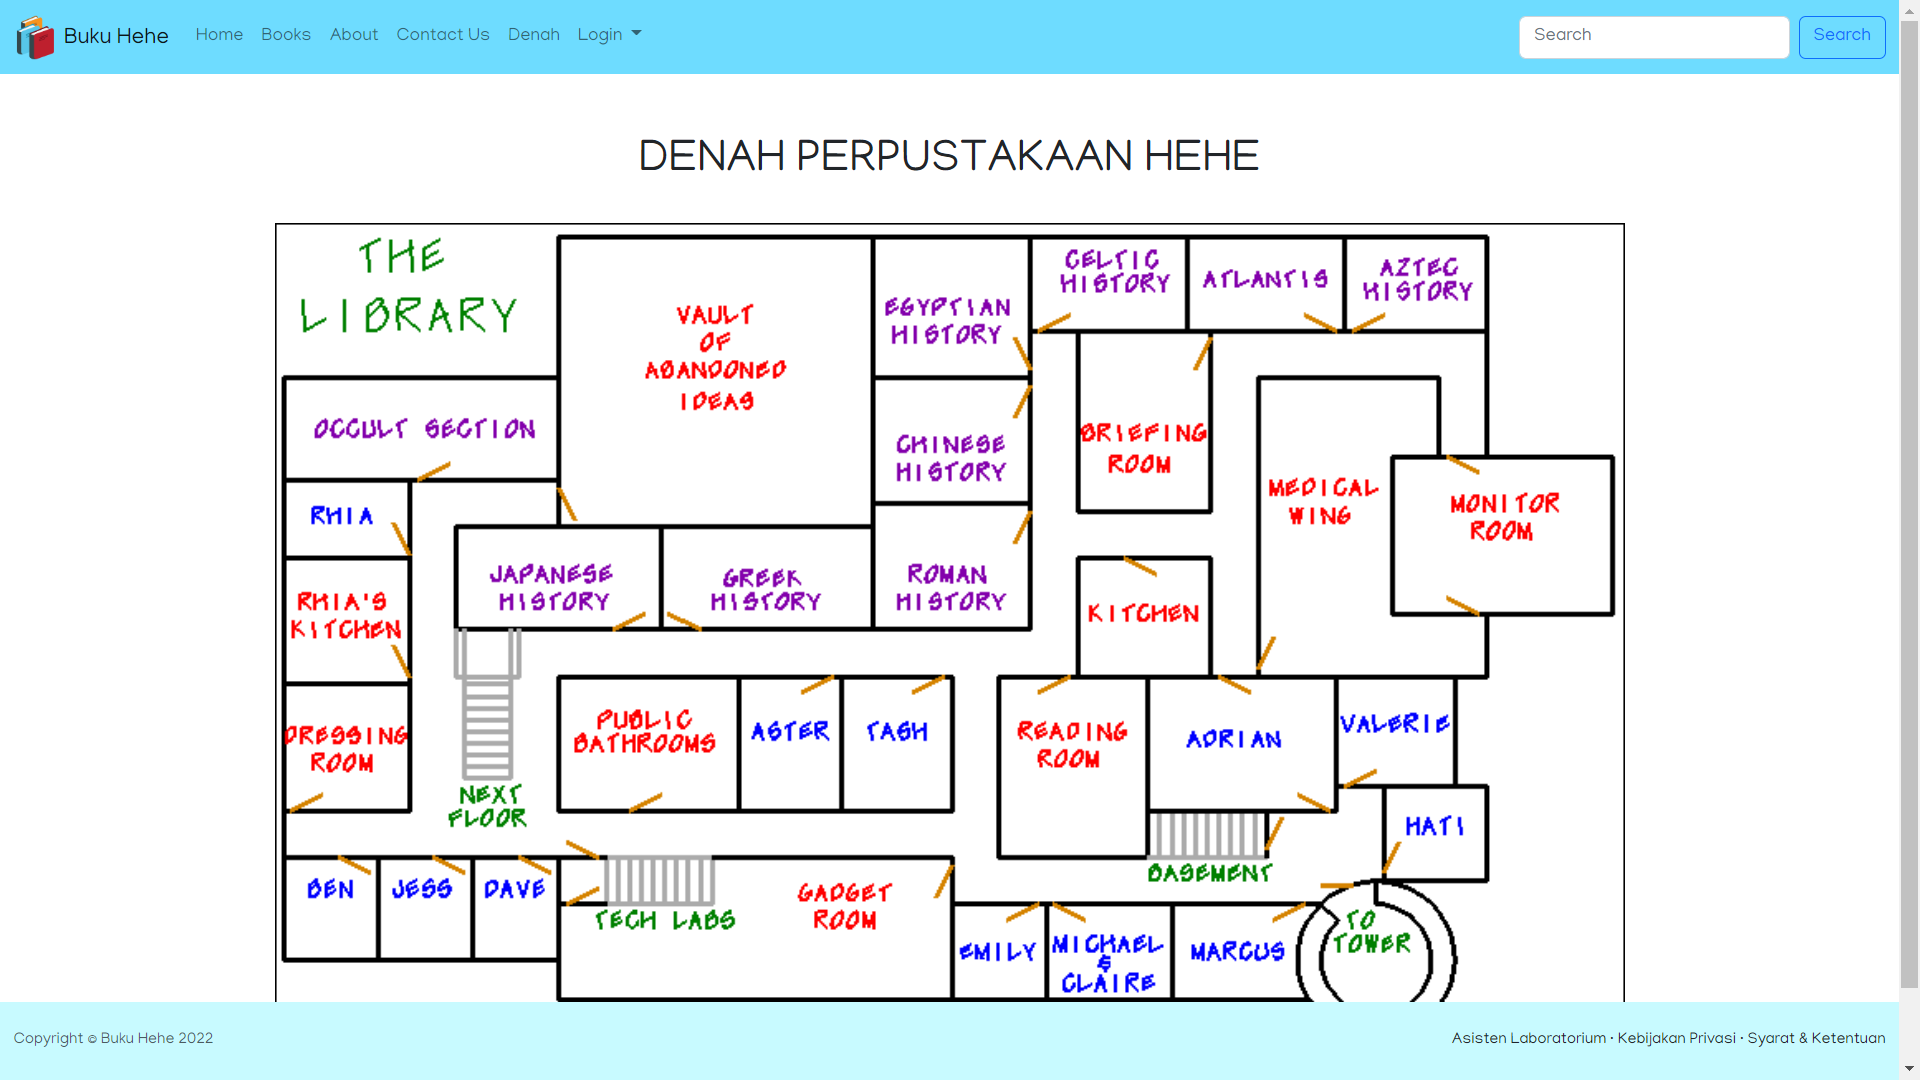 Buku Hehe
Home
Books
About
Contact Us
Denah
Login
Search
Search
DENAH PERPUSTAKAAN HEHE
THE
LIBRARY
VAULT
OF
ABANDONED
IDEAS
EGYPTIAN
HISTORY
CELTIC
HISTORY
ATLANTIS
AZTEC
HISTORY
OCCULT SECTION
CHINESE
HISTORY
BRIEFING
ROOM
MEDICAL
WING
MONITOR
ROOM
RHIA
JAPANESE
HISTORY
GREEK
HISTORY
ROMAN
HISTORY
RHIA'S
KITCHEN
KITCHEN
DRESSING
ROOM
PUBLIC
BATHROOMS
ASTER
TASH
READING
ROOM
ADRIAN
VALERIE
NEXT
FLOOR
HATI
BASEMENT
BEN
JESS
DAVE
TECH LABS
GADGET
ROOM
EMILY
MICHAEL
&
CLAIRE
MARCUS
TO
TOWER
Copyright © Buku Hehe 2022
Asisten Laboratorium · Kebijakan Privasi · Syarat & Ketentuan